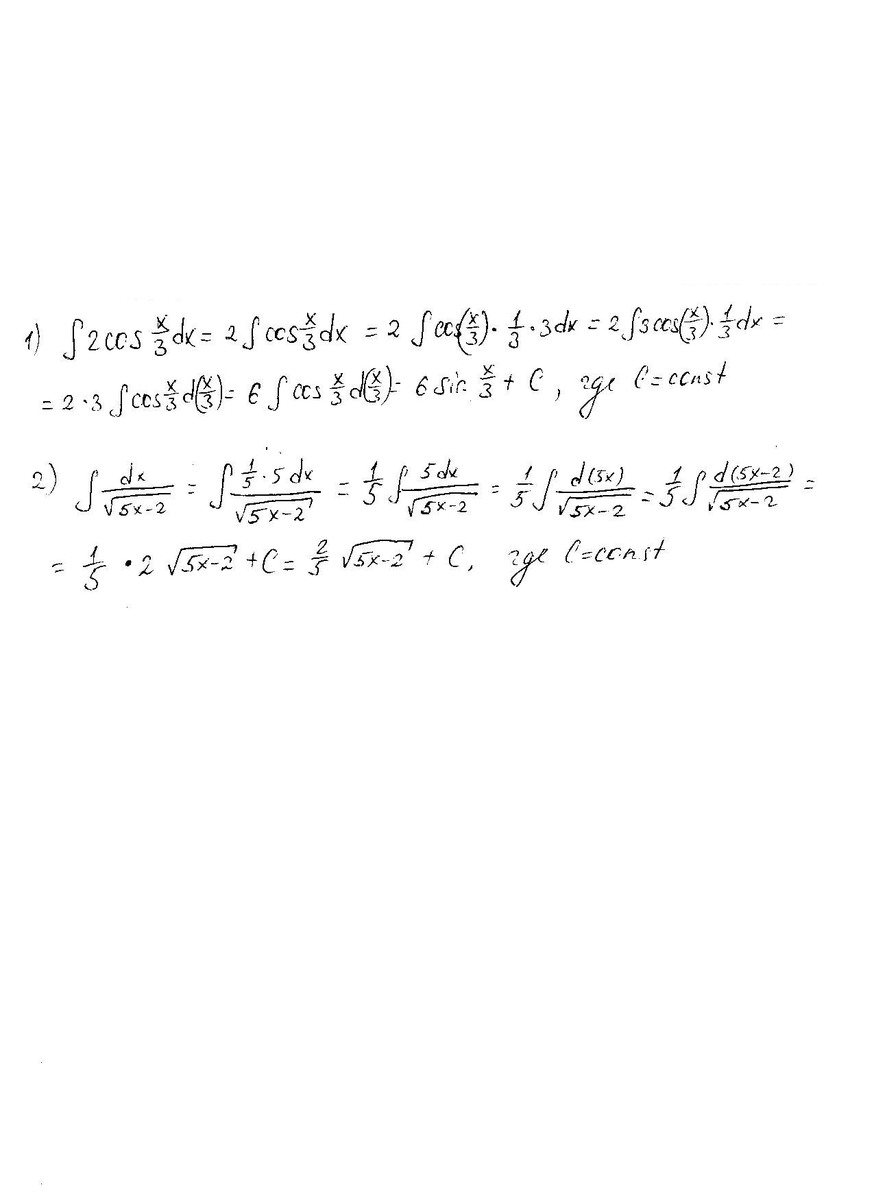 1) ∫2cos x/3 dx = 2∫cos x/3 dx = 2∫cos(x/3)·1/3·3dx = 2∫3cos(x/3)·1/3 dx =
= 2·3∫cos x/3 d(x/3) = 6∫cos x/3 d(x/3) = 6 sin x/3 + C, где C=const
2) ∫dx/√(5x-2) = ∫(1/5·5dx)/√(5x-2) = 1/5∫5dx/√(5x-2) = 1/5∫d(5x)/√(5x-2) = 1/5∫d(5x-2)/√(5x-2) =
= 1/5 · 2√(5x-2) + C = 2/5 √(5x-2) + C, где C=const